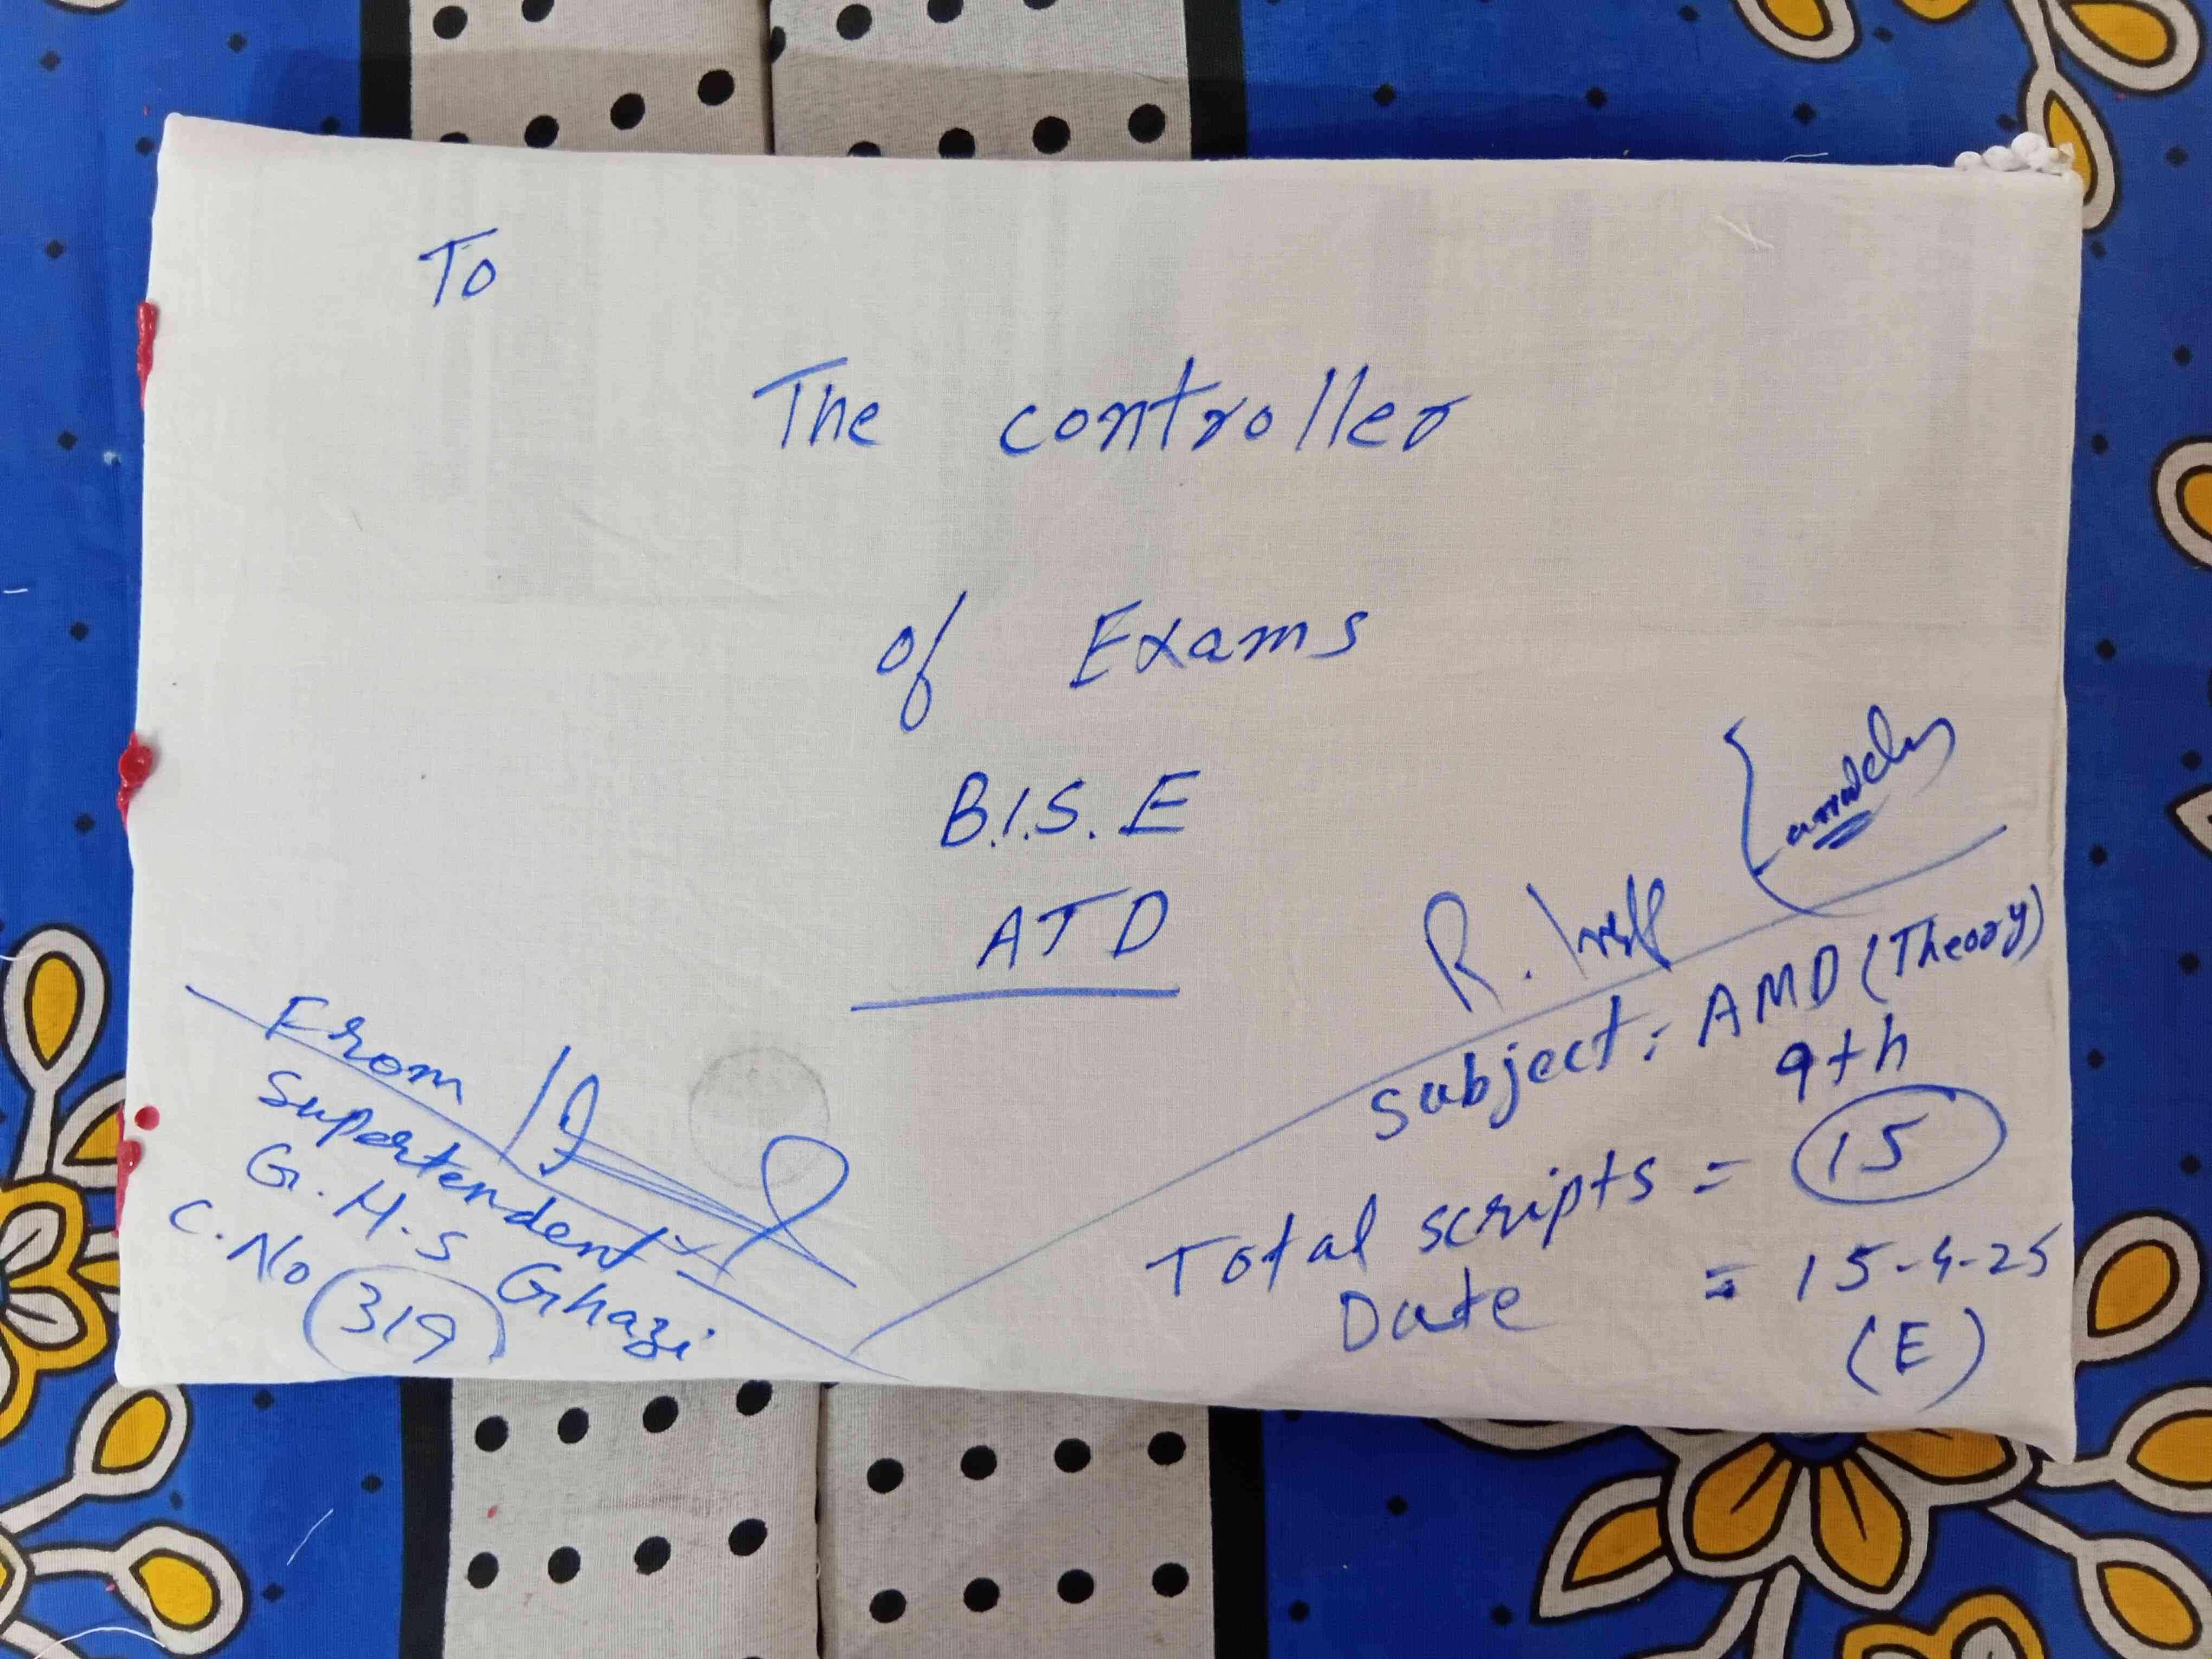 To
The controller
of Exams
B.I.S. E
ATD
From
Supertendent
G.H.S Ghazi
C. No 319
R.
Subject: AMD (Theory)
9th
Total scripts = 15
Date = 15-4-25
(E)